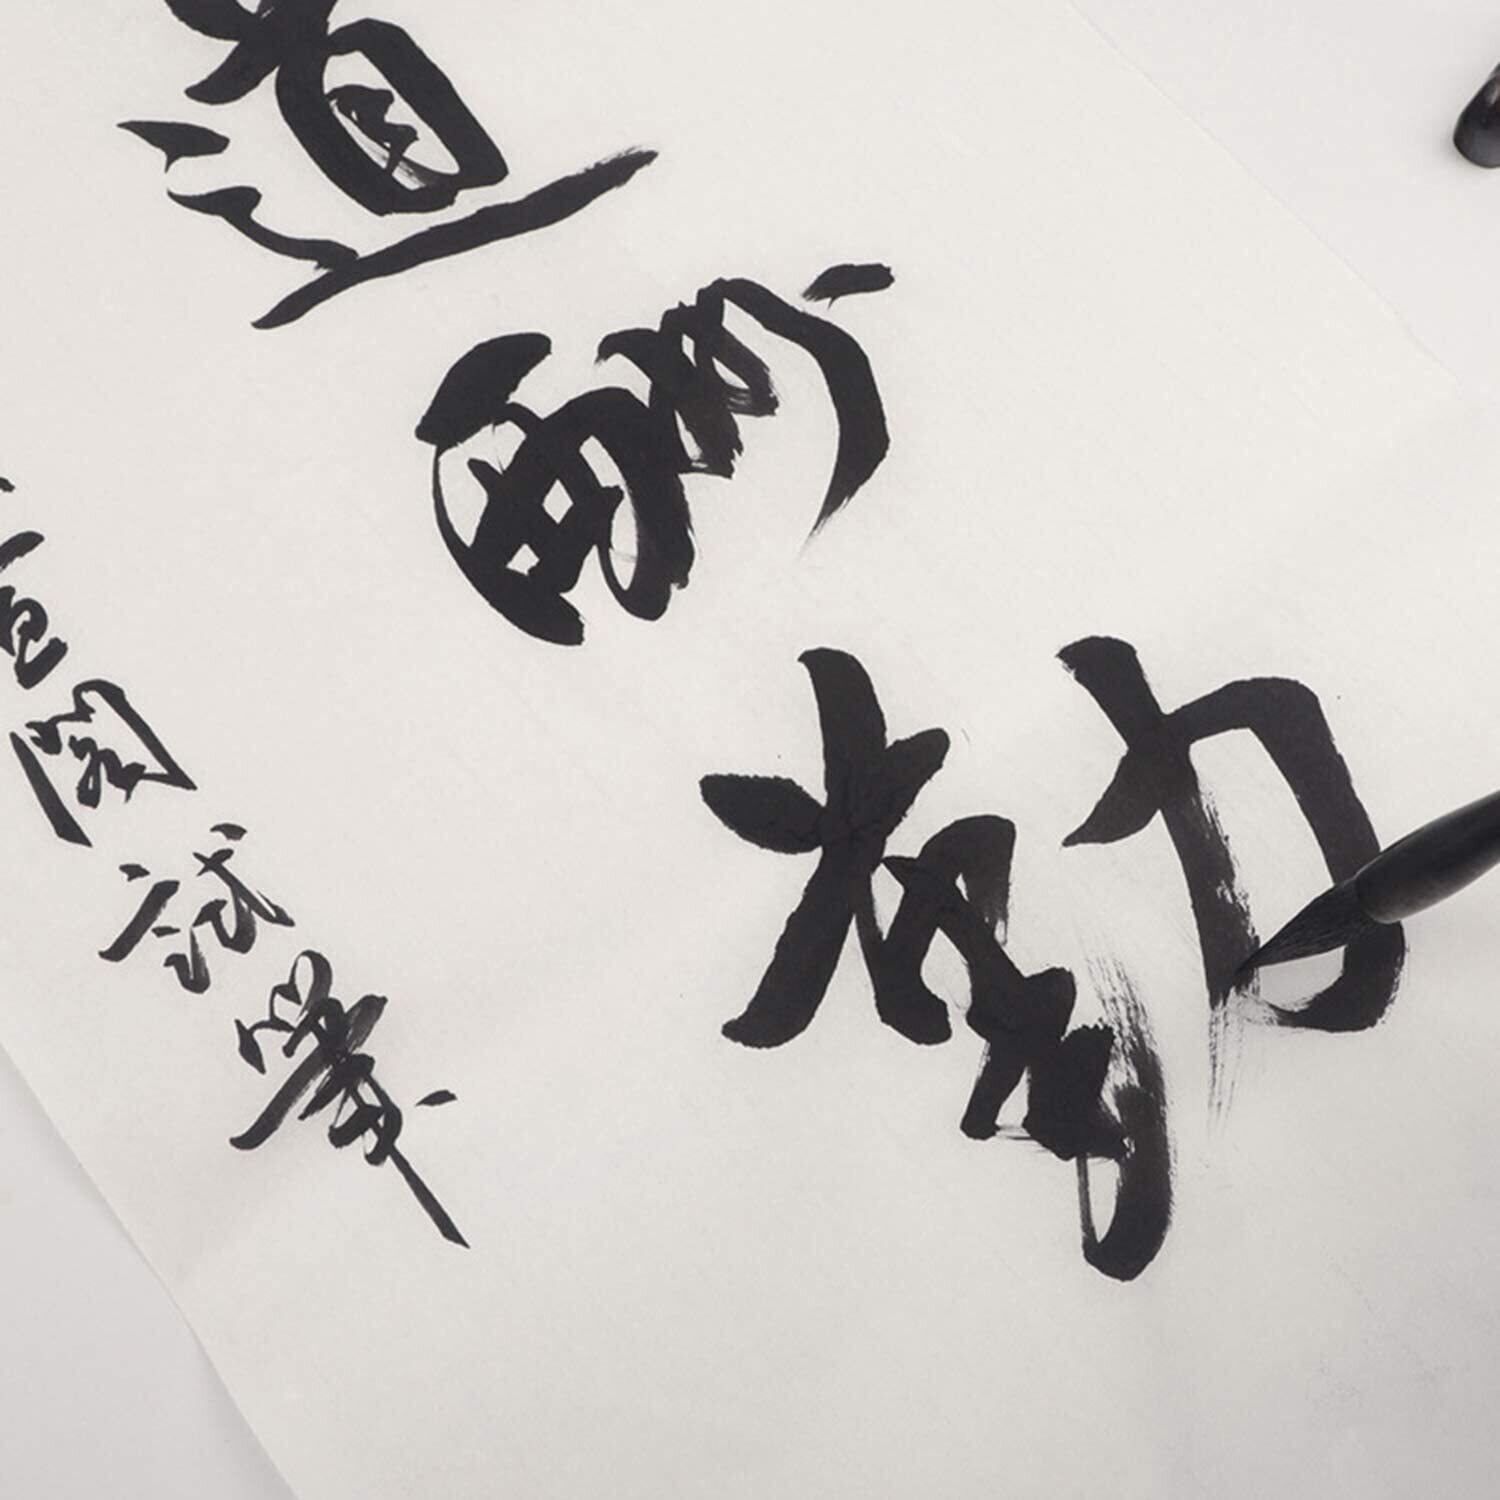 道酬勤
閣試筆